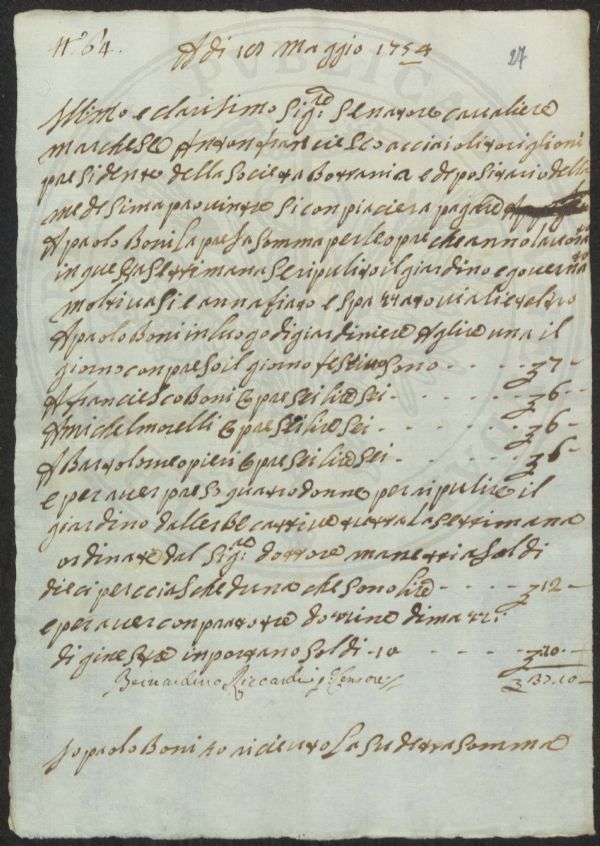 N.o 64.
Adi 18 Maggio 1754
27
Illmo e clarisimo Sigre Senatore cavaliere
marchese Antonfranciesco acciaioli toriglioni
presidente della Società Bottania e depositario della
medesima pacuintre si conpiaciera pagare
A paolo Boni la presa somma per leopre che anno lavorato
in questa settimana se ripulito il giardino e governato
molti vasi e annafiato e spazzato viali et altro
A paolo Boni in luogo di giardiniere A glire una il
giorno conpreso il giorno festivo sono - - - - 37
A franciesco Boni 6 pre sei lire sei - - - - 36 -
A michel morelli 6 pre sei lire sei - - - - 36 -
A Bartolomeo pieri 6 pre sei lire sei - - - - 36
e per aver preso quatro donne per ripulire il
giardino dallerbe cattive tutta la settimana
ordinate dal Sigre dottore manettia soldi
dieci per ciascheduna che sono lire - - - - 312 -
e per aver conprato tre dozzine di mazzi
di ginestre inportano soldi - 10 - - - - 3.10. -
Bernardino Riccardi p Censore
3 37.10 -
Io paolo Boni ho ricieuto la sudetta somma